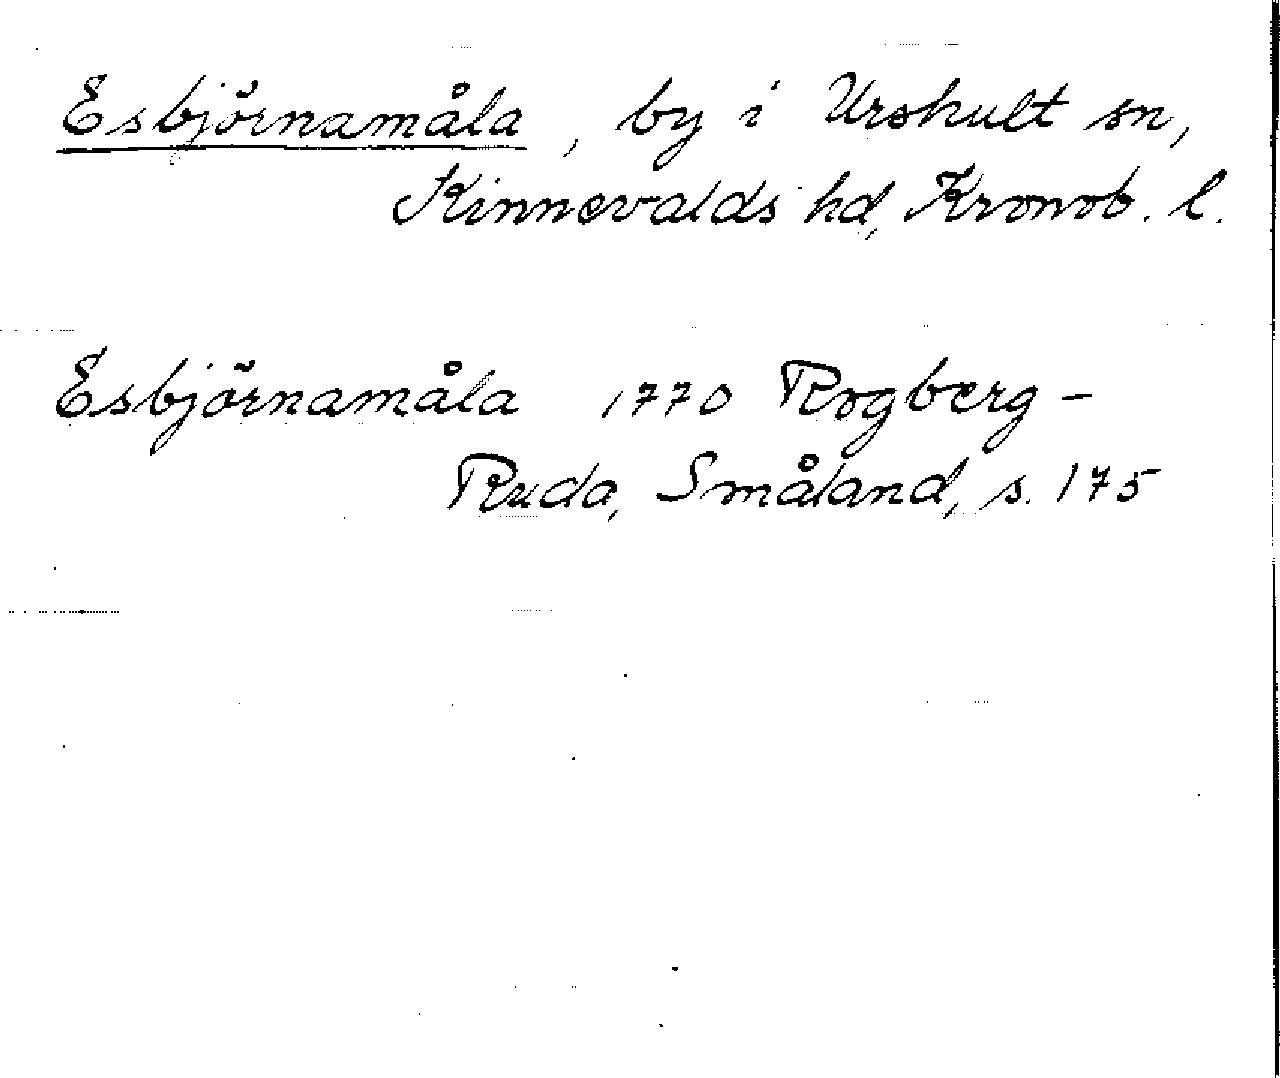 Esbjörnamåla, by i Urshult sn,
Kinnevalds hd, Kronob. l.
Esbjörnamåla 1770 Rogberg -
Ruda, Småland, s. 175